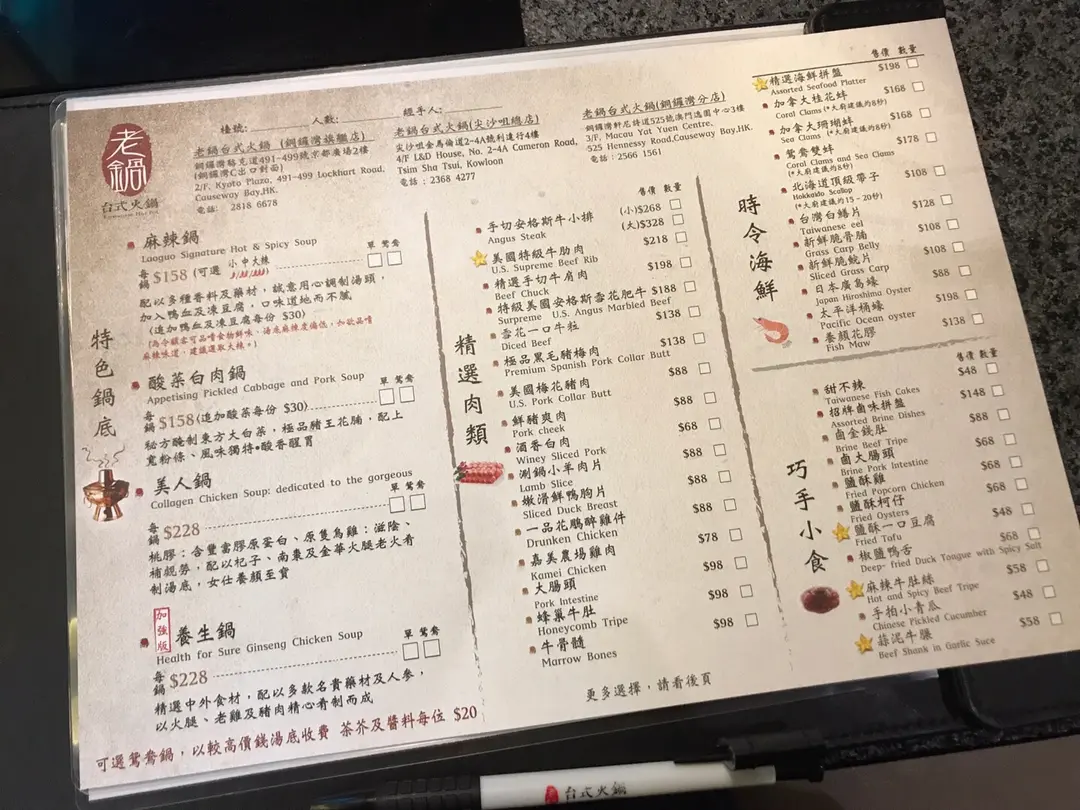 老鍋
台式火鍋
檯號:
人數:
經手人:
老鍋台式火鍋 (銅鑼灣旗艦店)
銅鑼灣駱克道491-499號京都廣場2樓
(銅鑼灣C出口對面)
2/F, Kyoto Plaza, 491-499 Lockhart Road,
Causeway Bay,HK.
電話: 2818 6678
老鍋台式火鍋(尖沙咀總店)
尖沙咀金馬倫道2-4A號利達行4樓
4/F L&D House, No. 2-4A Cameron Road,
Tsim Sha Tsui, Kowloon
電話 : 2368 4277
老鍋台式火鍋(銅鑼灣分店)
銅鑼灣軒尼詩道525號澳門逸園中心3樓
3/F, Macau Yat Yuen Centre,
525 Hennessy Road,Causeway Bay,HK.
電話 : 2566 1561
特色鍋底
麻辣鍋
Laoguo Signature Hot & Spicy Soup
單 鴛鴦
每鍋 $158 (可選 小中大辣
配以多種香料及藥材，誠意用心調制湯頭，
加入鴨血及凍豆腐，口味道地而不膩
(追加鴨血及凍豆腐每份 $30)
麻辣味道，建議選取大辣。)
酸菜白肉鍋
Appetising Pickled Cabbage and Pork Soup
單 鴛鴦
每鍋 $158(追加酸菜每份 $30)
秘方醃制東方大白菜，極品豬王花腩，配上
寬粉條、風味獨特•酸香醒胃
美人鍋
Collagen Chicken Soup: dedicated to the gorgeous
單 鴛鴦
每鍋 $228
桃膠：含豐富膠原蛋白、原隻烏雞：滋陰、
補虧勞，配以杞子、南棗及金華火腿老火肴
制湯底，女仕養顏至寶
加強版
養生鍋
Health for Sure Ginseng Chicken Soup
單 鴛鴦
每鍋 $228
精選中外食材，配以多款名貴藥材及人參，
以火腿、老雞及豬肉精心肴制而成
可選鴛鴦鍋，以較高價錢湯底收費 茶芥及醬料每位 $20
精選肉類
售價 數量
手切安格斯牛小排 (小)$268
Angus Steak (大)$328
美國特級牛肋肉 $218
U.S. Supreme Beef Rib
精選手切牛肩肉 $198
Beef Chuck
特級美國安格斯雪花肥牛 $188
Surpreme U.S. Angus Marbled Beef
雪花一口牛粒 $138
Diced Beef
極品黑毛豬梅肉 $138
Premium Spanish Pork Collar Butt
美國梅花豬肉 $88
U.S. Pork Collar Butt
鮮豬爽肉 $88
Pork cheek
酒香白肉 $68
Winey Sliced Pork
涮鍋小羊肉片 $88
Lamb Slice
嫩滑鮮鴨胸片 $88
Sliced Duck Breast
一品花鵰醉雞件 $88
Drunken Chicken
嘉美農場雞肉 $78
Kamei Chicken
大腸頭 $98
Pork Intestine
蜂巢牛肚 $98
Honeycomb Tripe
牛骨髓 $98
Marrow Bones
更多選擇，請看後頁
時令海鮮
售價 數量
精選海鮮拼盤 $198
Assorted Seafood Platter
加拿大桂花蚌 $168
Coral Clams (*大廚建議約8秒)
加拿大珊瑚蚌 $168
Sea Clams (*大廚建議約8秒)
鴛鴦雙蚌 $178
Coral Clams and Sea Clams
(*大廚建議約8秒)
北海道頂級帶子 $108
Hokkaido Scallop
(*大廚建議約15-20秒)
台灣白鱔片 $128
Taiwanese eel
新鮮脆骨腩 $108
Grass Carp Belly
新鮮脆鯇片 $108
Sliced Grass Carp
日本廣島蠔 $88
Japan Hiroshima Oyster
太平洋桶蠔 $198
Pacific Ocean oyster
養顏花膠 $138
Fish Maw
巧手小食
售價 數量
甜不辣 $48
Taiwanese Fish Cakes
招牌鹵味拼盤 $148
Assorted Brine Dishes
鹵金錢肚 $88
Brine Beef Tripe
鹵大腸頭 $68
Brine Pork Intestine
鹽酥雞 $68
Fried Popcorn Chicken
鹽酥柯仔 $68
Fried Oysters
鹽酥一口豆腐 $48
Fried Tofu
椒鹽鴨舌 $68
Deep- fried Duck Tongue with Spicy Salt
麻辣牛肚絲 $58
Hot and Spicy Beef Tripe
手拍小青瓜 $48
Chinese Pickled Cucumber
蒜泥牛𦟌 $58
Beef Shank in Garlic Suce
台式火鍋